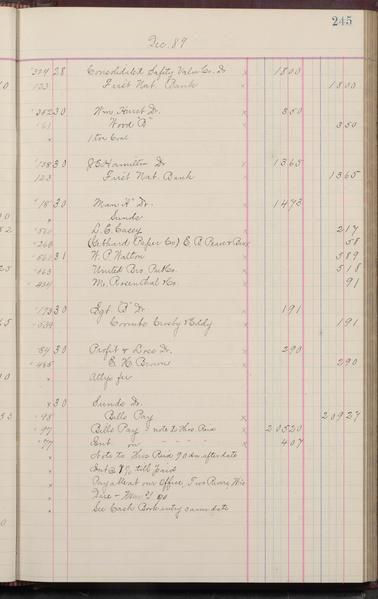 245
Dec. 89
374 28 Consolidated Safety Valve Co. Dr x 18 00
123 First Nat. Bank x 18 00
262 30 Wm. Hurst Dr. x 3 50
61 Wood "B" x 3 50
x 1 ton Coal
128 30 J. E. Hamilton Dr x 13 65
123 First Nat. Bank x 13 65
18 30 Man "H" Dr. x 14 73
Sunds
560 D. E. Casey x 2 17
268 (Gethard Paper Co) E. B. x 58
31 W. P. Walton x 5 89
463 United Bro. Pub Co. x 5 18
434 M. Rosenthal & Co. x 91
175 30 Eqt. "B" Dr x 1 91
Coombs Crosby & Eddy x 1 91
54 30 Profit & Loss Dr. x 2 90
485 E. H. Brown x 2 90
x Attys fee
x 30 Sunds Dr.
98 Bills Pay x 209 27
97 Bills Pay - note to x 205 20
77 Int. on " " " x 4 07
x Note to 90 da after date
x Int @ 7% till paid
x Payable at our Office, Two Rivers, Wis
x Due - Mar 31 90
x See Cash Book entry same date